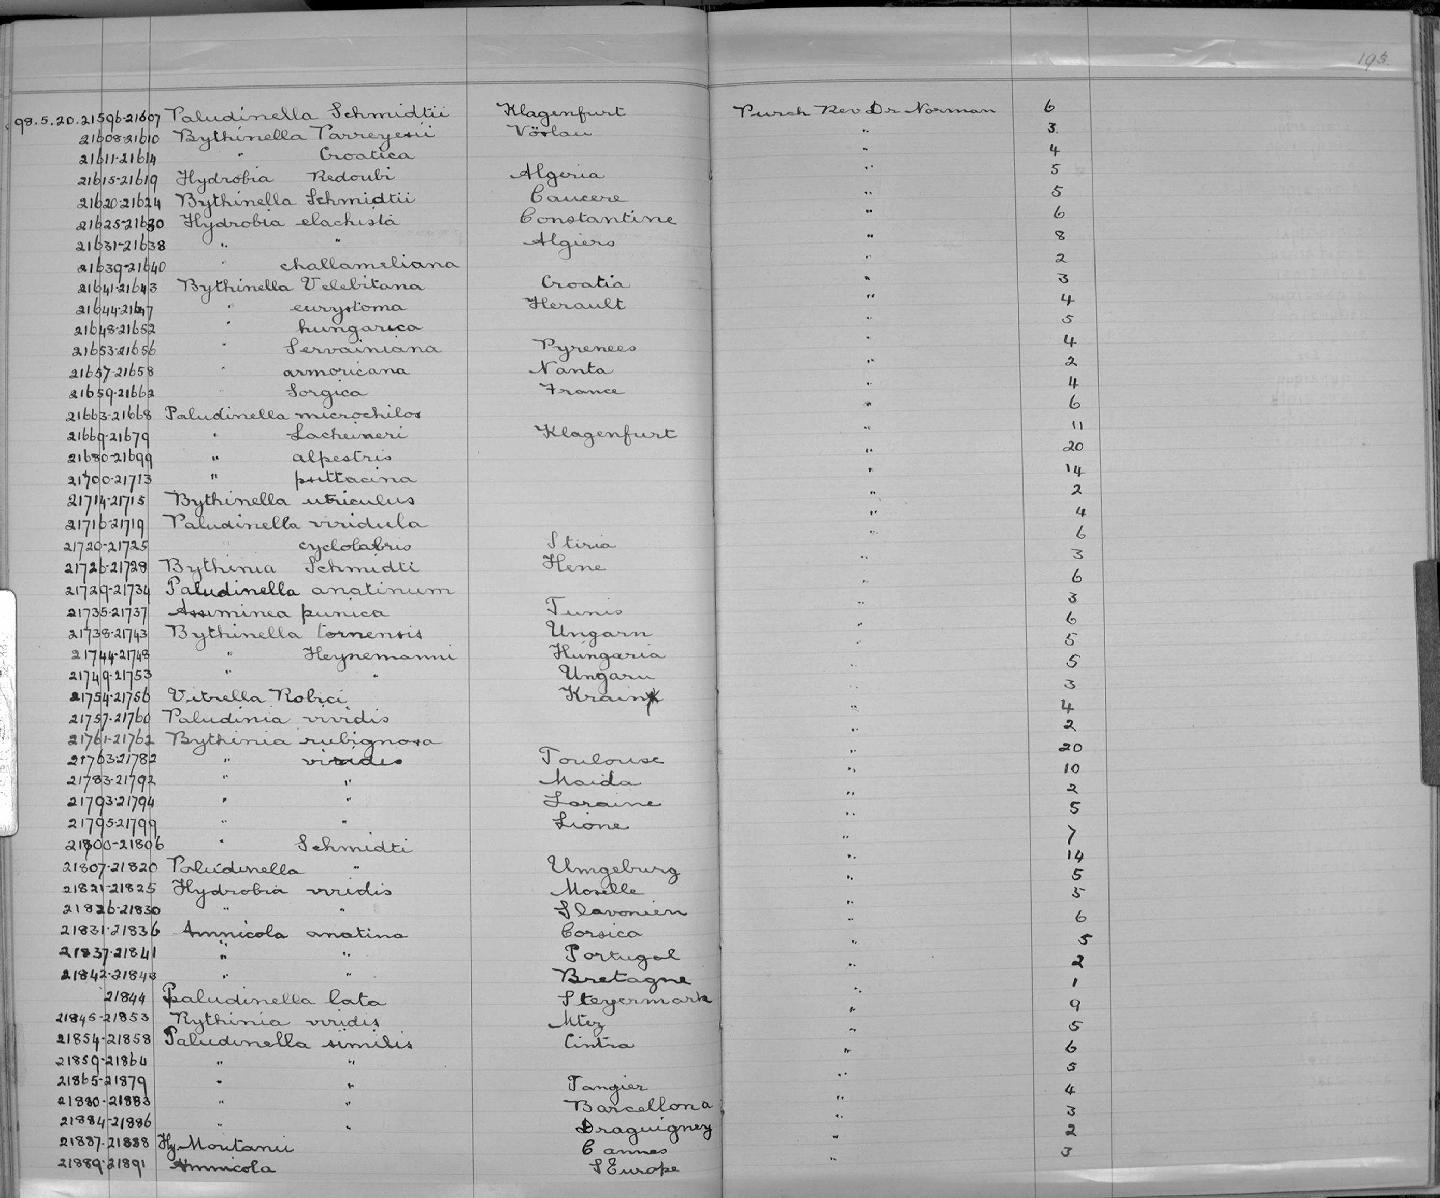 195.
98.5.20.21596-21607 Paludinella Schmidtii Klagenfurt Purch Rev Dr Norman 6
21608-21610 Bythinella Parreyssii Vöslau " 3
21611-21614 " Croatica " 4
21615-21619 Hydrobia Redoubi Algeria " 5
21620-21624 Bythinella Schmidtii Caucere " 5
21625-21630 Hydrobia elachista Constantine " 6
21631-21638 " " Algiers " 8
21639-21640 " challameliana " 2
21641-21643 Bythinella Velebitana Croatia " 3
21644-21647 " eurystoma Herault " 4
21648-21652 " hungarica " 5
21653-21656 " Servainiana Pyrenees " 4
21657-21658 " armoricana Nanta " 2
21659-21662 " Sorgica France " 4
21663-21668 Paludinella microchilos " 6
21669-21679 " Lacheineri Klagenfurt " 11
21680-21699 " alpestris " 20
21700-21713 " psittacina " 14
21714-21715 Bythinella utriculus " 2
21716-21719 Paludinella viridula " 4
21720-21725 " cyclolabris Stiria " 6
21726-21728 Bythinia Schmidti Hene " 3
21729-21734 Paludinella anatinum " 6
21735-21737 Assiminea punica Tunis " 3
21738-21743 Bythinella tornensis Ungarn " 6
21744-21748 " Heynemanni Hungaria " 5
21749-21753 " " Ungarn " 5
21754-21756 Vitrella Robici Krain " 3
21757-21760 Paludinia viridis " 4
21761-21762 Bythinia rubignosa " 2
21763-21782 " viridis Toulouse " 20
21783-21792 " " Maida " 10
21793-21794 " " Loraine " 2
21795-21799 " " Lione " 5
21800-21806 " Schmidti " 7
21807-21820 Paludinella " Umgeburg " 14
21821-21825 Hydrobia viridis Moselle " 5
21826-21830 " " Slavonien " 5
21831-21836 Amnicola anatina Corsica " 6
21837-21841 " " Portugal " 5
21842-21843 " " Bretagne " 2
21844 Paludinella lata Steyermark " 1
21845-21853 Bythinia viridis Mtez " 9
21854-21858 Paludinella similis Cintra " 5
21859-21864 " " " 6
21865-21879 " " Tangier " 5
21880-21883 " " Barcellona " 4
21884-21886 " " Draguigney " 3
21887-21888 Hy. Moutanii Cannes " 2
21889-21891 Amnicola S Europe " 3